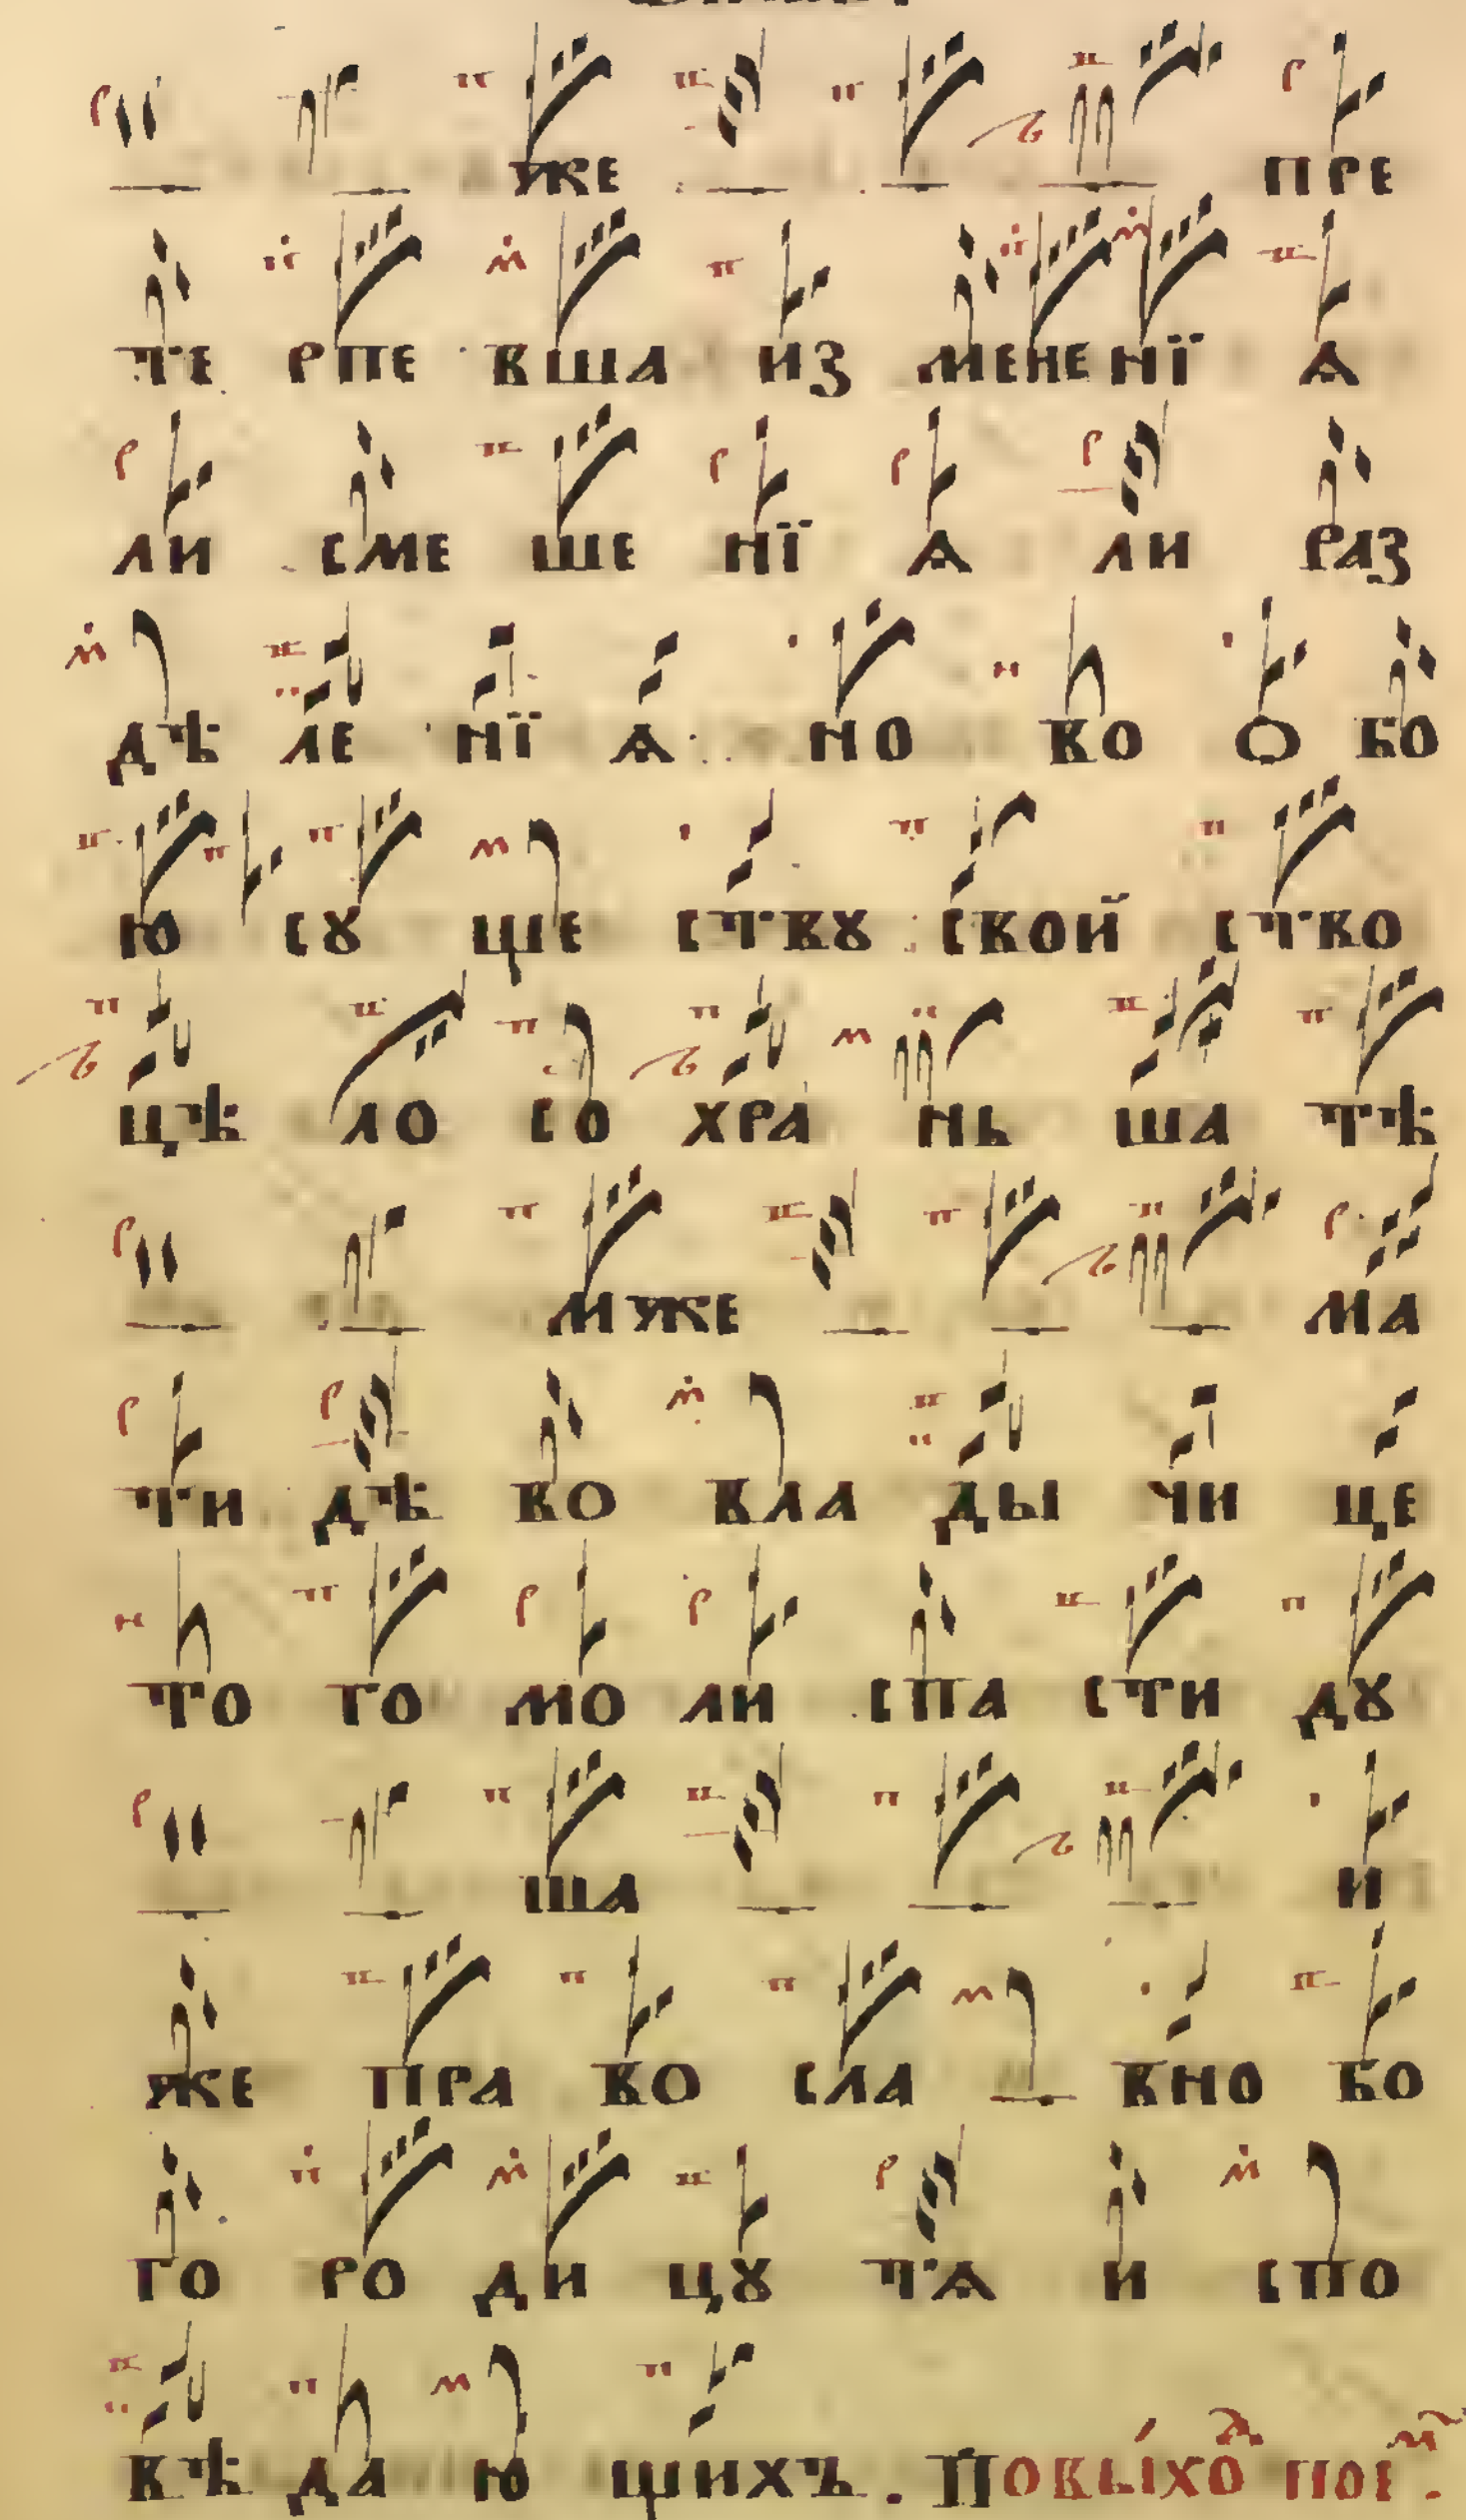 ЖЕ ПРЕ
ТЕ РПЕ ВША ИЗ МЕНЕНЇ Ѧ
ЛИ СМЕ ШЕ НЇ Ѧ ЛИ РАЗ
ДѢ ЛЕ НЇ Ѧ НО ВО О БО
Ю СꙊ ЩЕ СТВꙊ СВОЙ СТВО
ЦѢ ЛО СО ХРА НЬ ША ТѢ
МЖЕ МА
ТИ ДѢ ВО ВЛА ДЫ ЧИ ЦЕ
ТО ГО МО ЛИ СПА СТИ ДꙊ
ША И
ЖЕ ПРА ВО СЛА ВНО БО
ГО РО ДИ ЦꙊ ТѦ И СПО
ВѢ ДА Ю ЩИХЪ. ПОВЫ́ХОⷣ ПОЕⷨ.